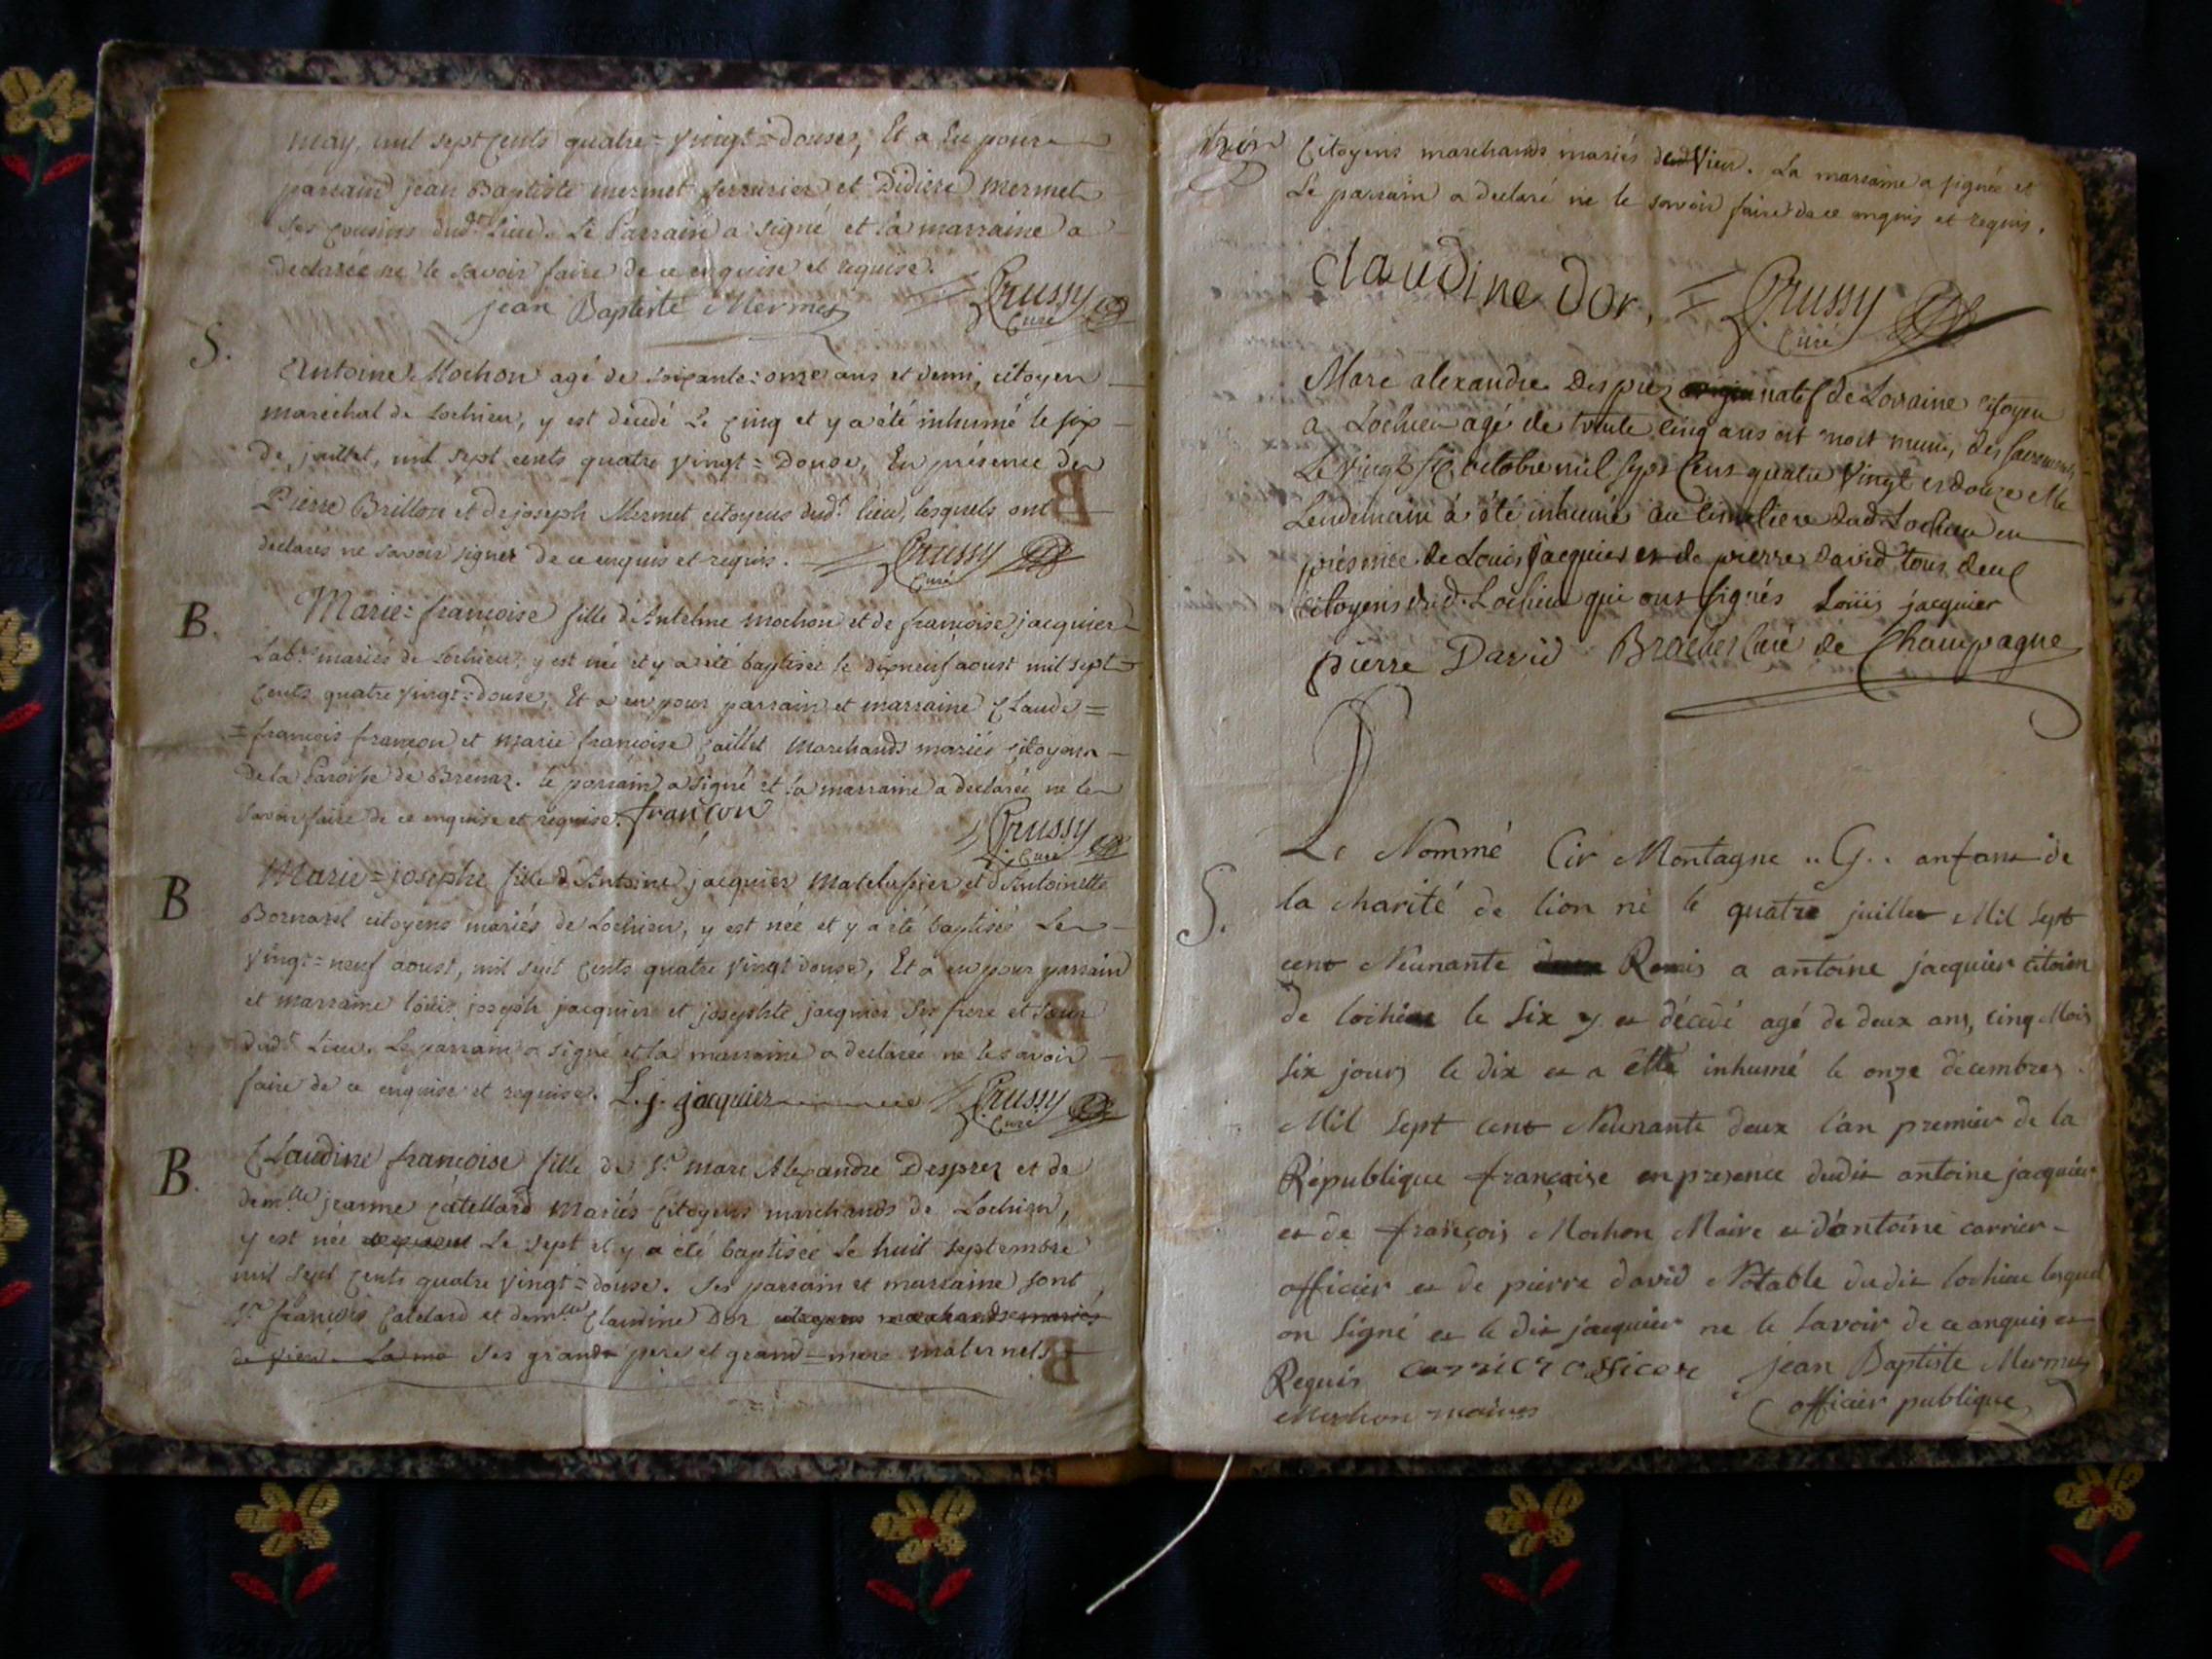 may, mil sept cents quatre=vingt=douse, Et a Eu pour
parrain jean Baptiste mermet serrurier et Didiere mermet
ses cousins dud.t Lieu. Le Parrain a signé et la marraine a
declarée ne le savoir faire de ce enquise et requise.
jean Baptiste Mermet Crussy
Curé
S.
Antoine Mochon agé de soixante=onze ans et demi, citoyen
maréchal de Lochieu, y est décedé Le cinq et y a été inhumé le six
de juillet, mil sept cents quatre vingt=Douse, En présence de
Pierre Brillon et de joseph Mermet citoyens dud.t lieu, lesquels ont
declarés ne savoir signer de ce enquis et requis. Crussy
Curé
B. Marie=françoise fille d'Antelme mochon et de françoise jacquier
Lab.rs mariés de Lochieu, y est née et y a été baptisée le dixneuf aoust mil sept
cents quatre vingt=douse, Et a eu pour parrain et marraine Claude=
=françois françon et marie françoise Caillet Marchands mariés citoyens
de la Paroisse de Brenaz. Le parrain a signé et la marraine a declarée ne le
savoir faire de ce enquise et requise. françon
Crussy
Curé
B Marie=josephe fille d'Antoine jacquier Matelassier et d'Antoinette
Bornarel citoyens mariés de Lochieu, y est née et y a été baptisée Le
vingt=neuf aoust, mil sept cents quatre vingt douse, Et a eu pour parrain
et marraine loüis joseph jacquier et josephte jacquier ses frere et sœur
dud.t Lieu. Le parrain a signé et la marraine a declarée ne le savoir
faire de ce enquise et requise. L. j. jacquier Crussy
Curé
B. Claudine françoise fille de S.r marc Alexandre Desprez et de
dem.lle jeanne Catellard Mariés citoyens marchands de Lochieu,
y est née Le sept et y a été baptisée Le huit septembre
mil sept cents quatre vingt=douse. Ses parrain et marraine sont
S.r françois Catelard et dem.lle Claudine Dor citoyens marchands mariés
de vieu. La ma ses grands pere et grand=mere maternels
citoyens marchands mariés de Vieu. La marraine a signée et
Le parrain a declaré ne le savoir faire de ce enquis et requis.
Claudine dor, Crussy
Curé
Marc alexandre Desprez natif de Lorraine citoyen
a Lochieu agé de trente cinq ans est mort muni des sacrements
Le vingt six octobre mil sept cens quatre vingt et douze et le
Lendemain à été inhumé au cimetiere dud. Lochieu en
présence de Louis jacquier et de pierre David tous deux
citoyens dud. Lochieu qui ont signés Loüis jacquier
pierre David Brachet Curé de Champagne
Le Nommé Cir Montagne .. G .. anfant de
S. la charité de lion né le quatre juillet Mil sept
cent Neunante Remis a antoine jacquier citoien
de lochieu le six y et décedé agé de deux ans, cinq Mois
six jours le dix et a etté inhumé le onze decembres
Mil sept cent Neunante deux l'an premier de la
République françaize en presence dudit antoine jacquier
et de françois Mochon Maire et d'antoine carrier
officier et de pierre david Notable dudit lochieu lesquel
on signé et le dit jacquier ne le savoir de ce anquis et
Requis carrier officier jean Baptiste Mermet
Mochon maire officier publique